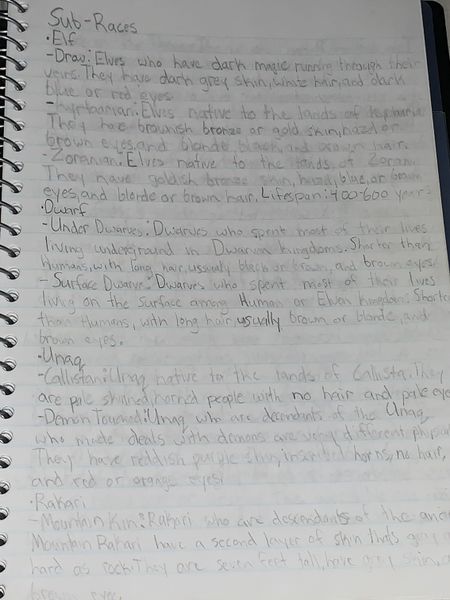 Sub-Races
·Elf
-Drow: Elves who have dark magic running through their
veins. They have dark grey skin, white hair, and dark
blue or red eyes.
Elves native to the lands of
They have brownish bronze or gold skin, hazel or
brown eyes, and blonde black, and brown hair.
-Zoranian: Elves native to the lands of Zoran.
They have goldish bronze skin, hazel, blue, or brown
eyes, and blonde or brown hair. Lifespan: 400-600 years
·Dwarf
-Under Dwarves: Dwarves who spent most of their lives
living underground in Dwarven kingdoms. Shorter then
humans, with long hair, usually black or brown, and brown eyes
-Surface Dwarves: Dwarves who spent most of their lives
living on the surface among Human or Elven kingdoms. Shorter
than Humans, with long hair, usually brown or blonde, and
brown eyes.
·Unaq
-Callistan: Unaq native to the lands of Callista. They
are pale skinned, horned people with no hair and pale eyes
-Demon Touched: Unaq who are descendants of the Unaq
who made deals with demons are very different
They have reddish purple skin, horns, no hair,
and red or orange eyes.
·Rakari
-Mountain Kin: Rakari who are descendants of the
Mountain Rakari have a second layer of skin thats
hard as rock. They are seven feet tall, have grey skin,
brown eyes.